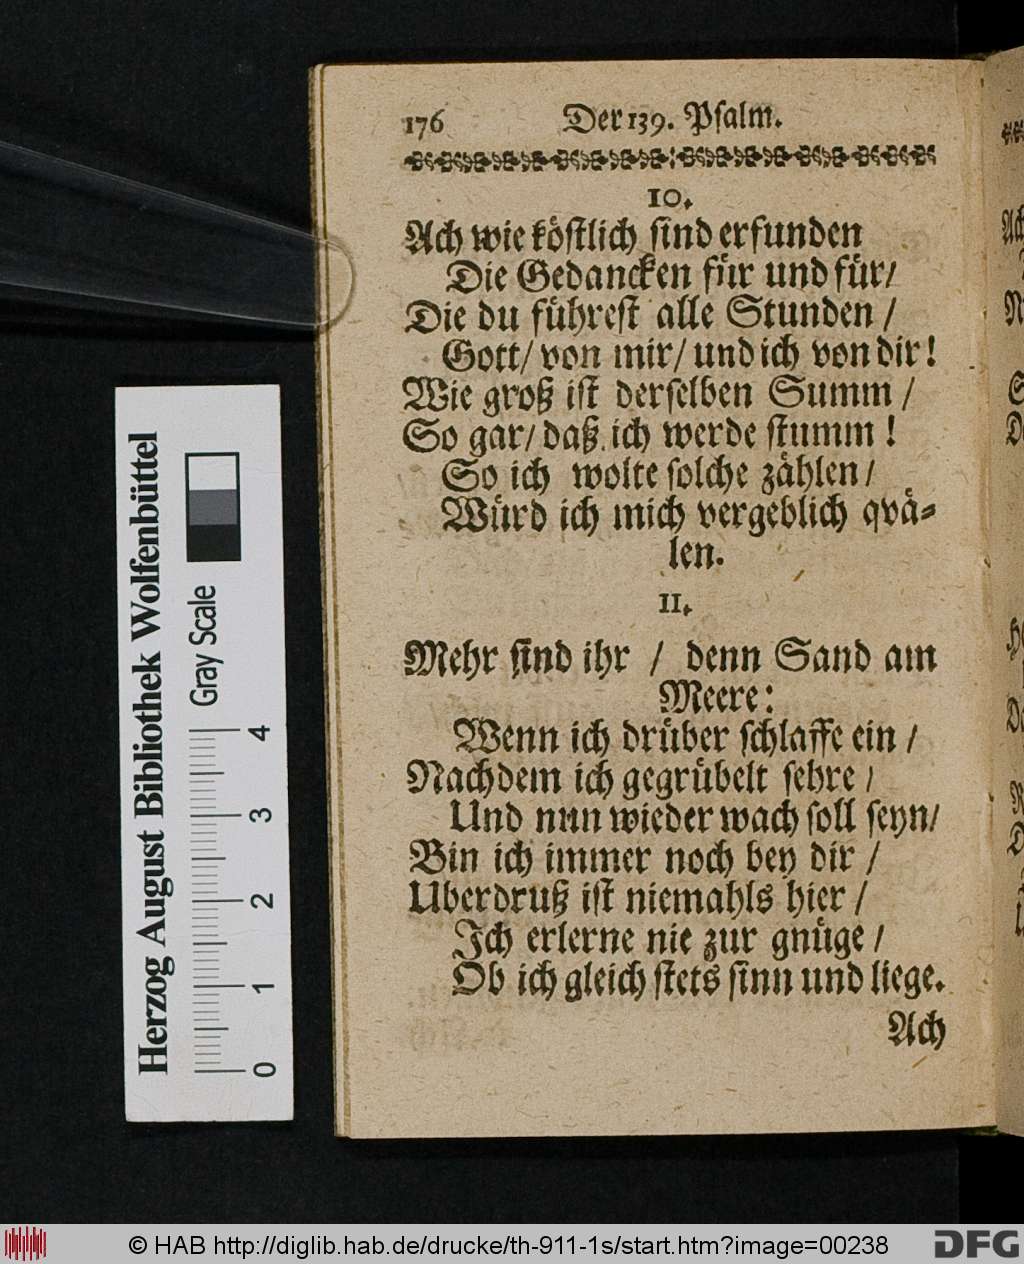 176 Der 139. Psalm.
10.
Ach wie köstlich sind erfunden
Die Gedancken für und für/
Die du führest alle Stunden /
Gott/ von mir/ und ich von dir!
Wie groß ist derselben Summ /
So gar/ daß ich werde stumm!
So ich wolte solche zählen/
Würd ich mich vergeblich qvä-
len.
11.
Mehr sind ihr / denn Sand am
Meere:
Wenn ich drüber schlaffe ein /
Nachdem ich gegrübelt sehre /
Und nun wieder wach soll seyn/
Bin ich immer noch bey dir /
Uberdruß ist niemahls hier /
Ich erlerne nie zur gnüge /
Ob ich gleich stets sinn und liege.
Ach
Herzog August Bibliothek Wolfenbüttel
Gray Scale
0 1 2 3 4
© HAB http://diglib.hab.de/drucke/th-911-1s/start.htm?image=00238
DFG